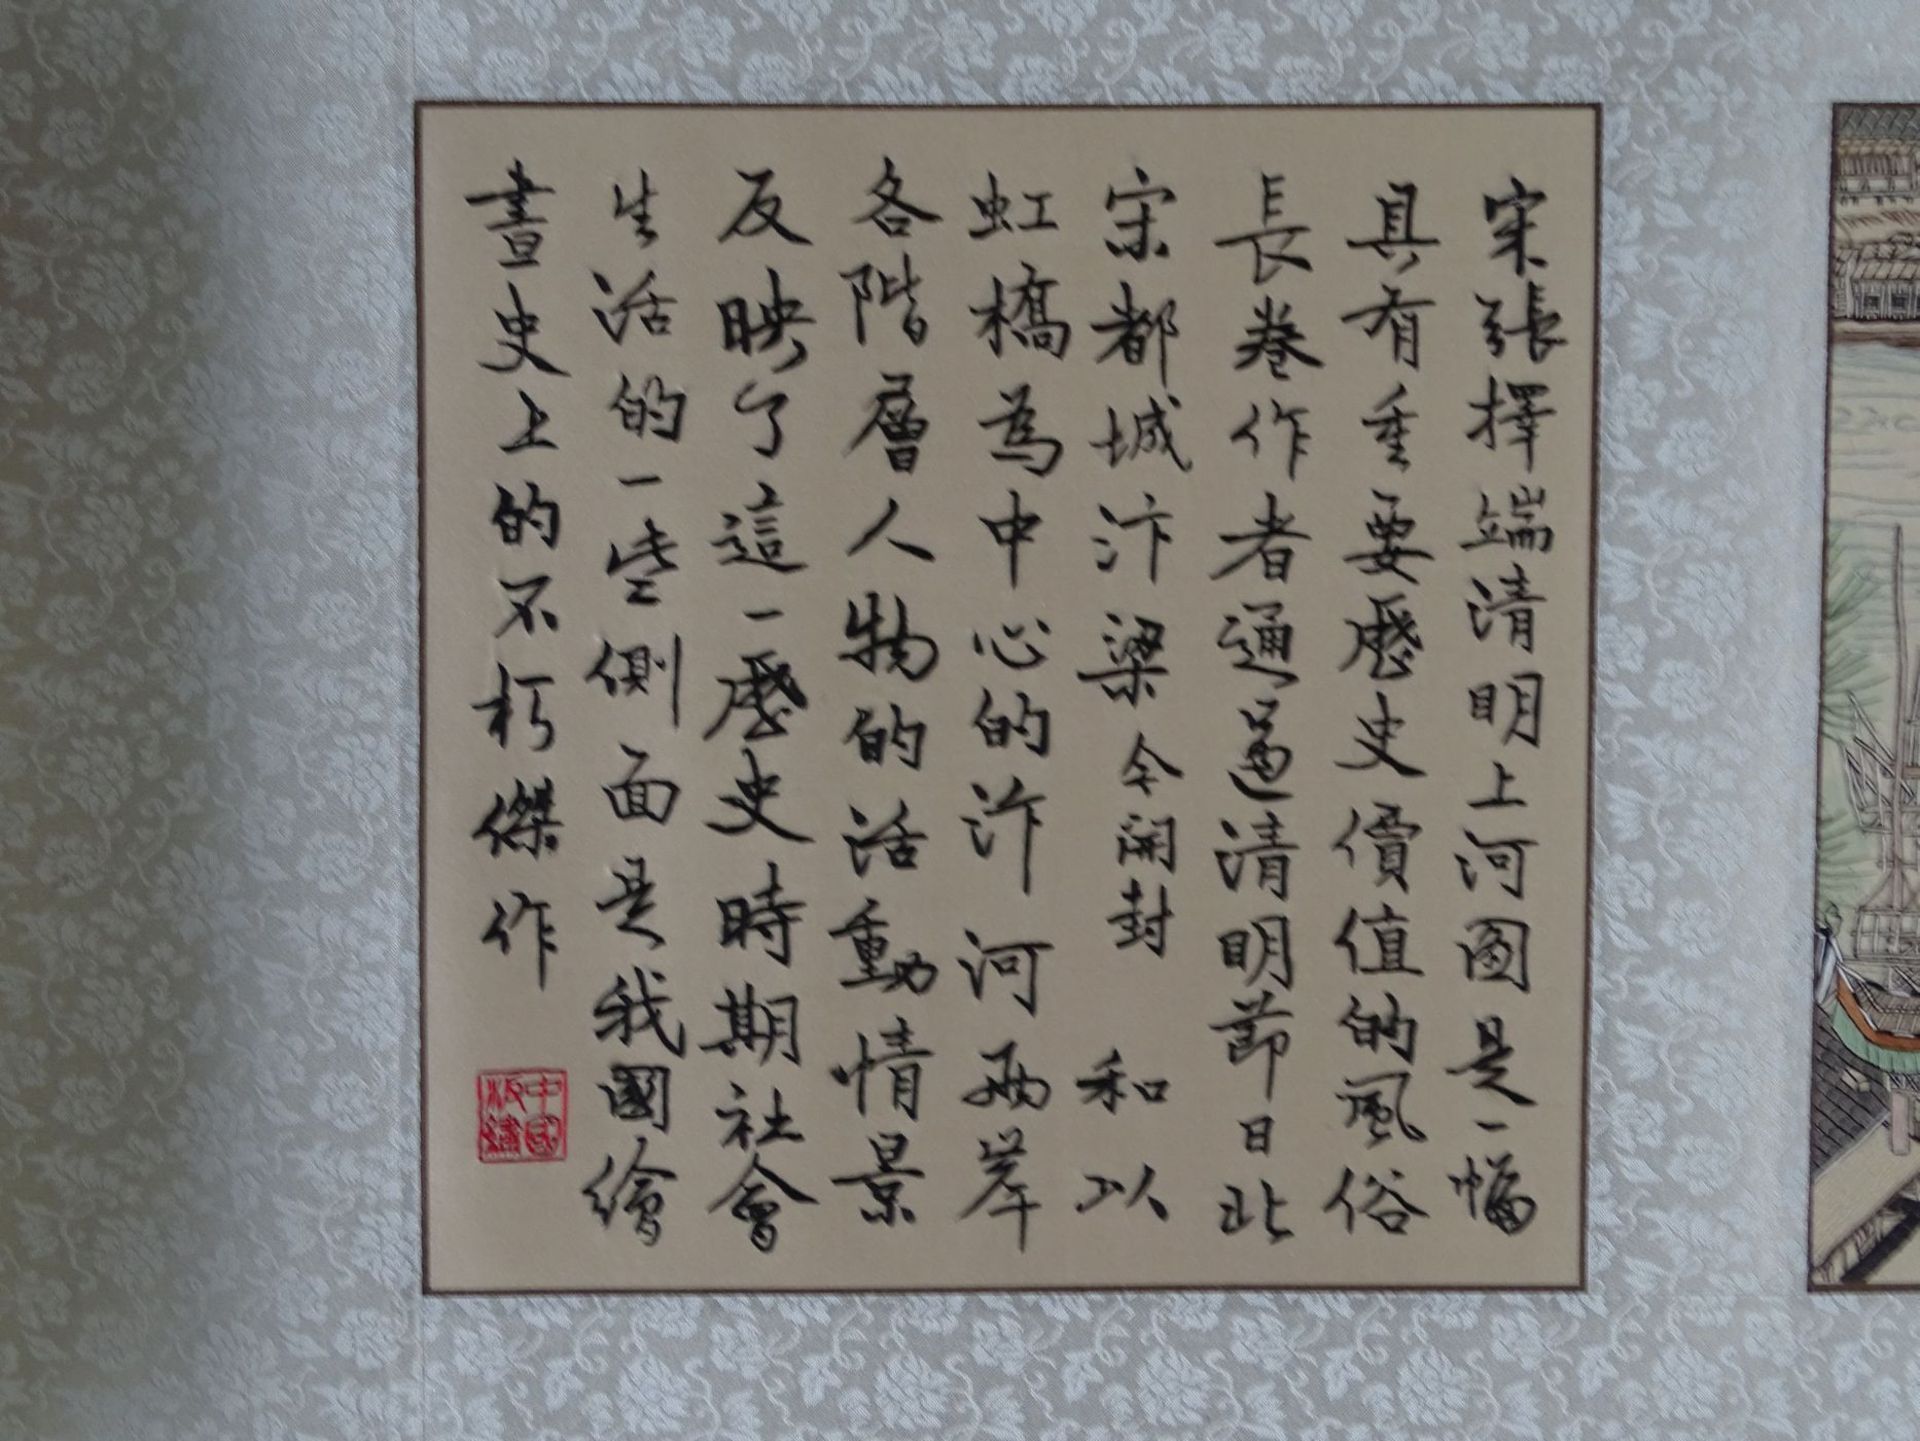 宋張擇端清明上河圖是一幅
具有重要歷史價值的風俗
長卷作者通過清明節日北
宋都城汴梁今開封和以
虹橋為中心的汴河兩岸
各階層人物的活動情景
反映了這一歷史時期社會
生活的一些側面是我國繪
畫史上的不朽傑作
中國